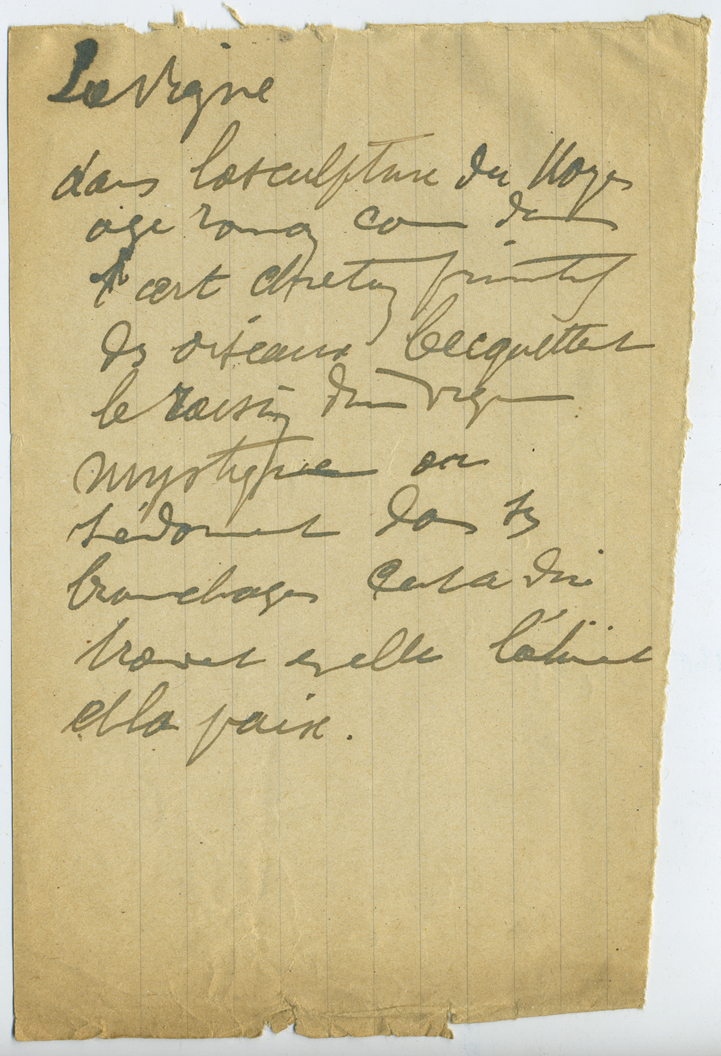 La vigne
dans la sculpture du Moyen
age roman comme dans
l'art chretien primitif
des oiseaux becquettent
le raisin d'une vigne
mystique ou
se donnent dans ses
branchages c'est a dire
trouvent en elle l'aliment
et la paix.